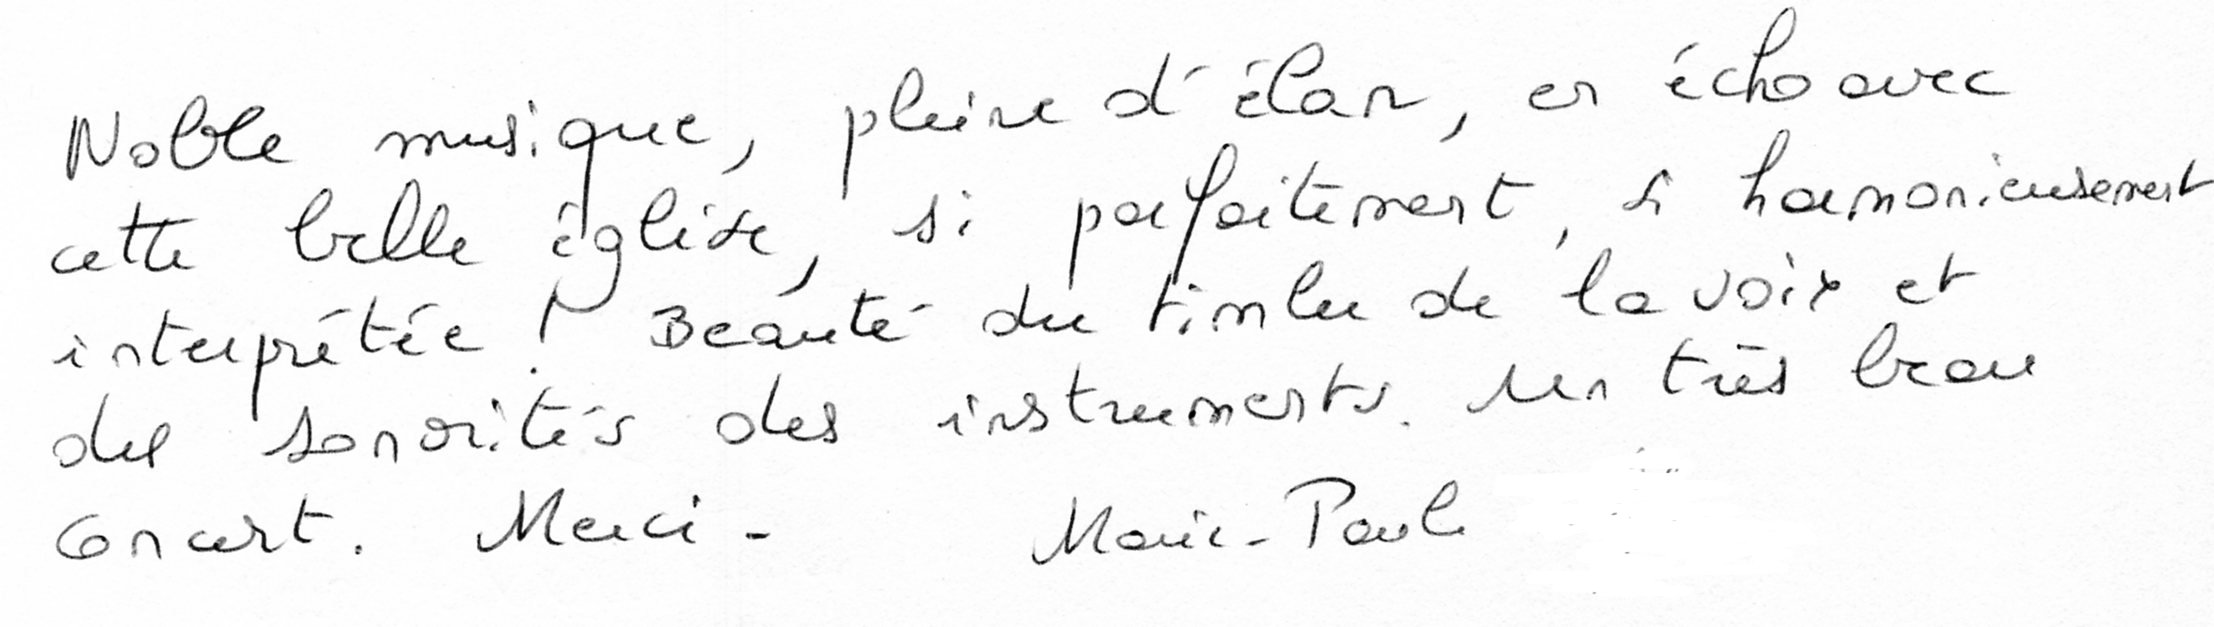 Noble musique, pleine d'élan, en écho avec
cette belle église, si parfaitement, si harmonieusement
interprétée ! Beauté du timbre de la voix et
des sonorités des instruments. Un très beau
concert. Merci -
Marie-Paule